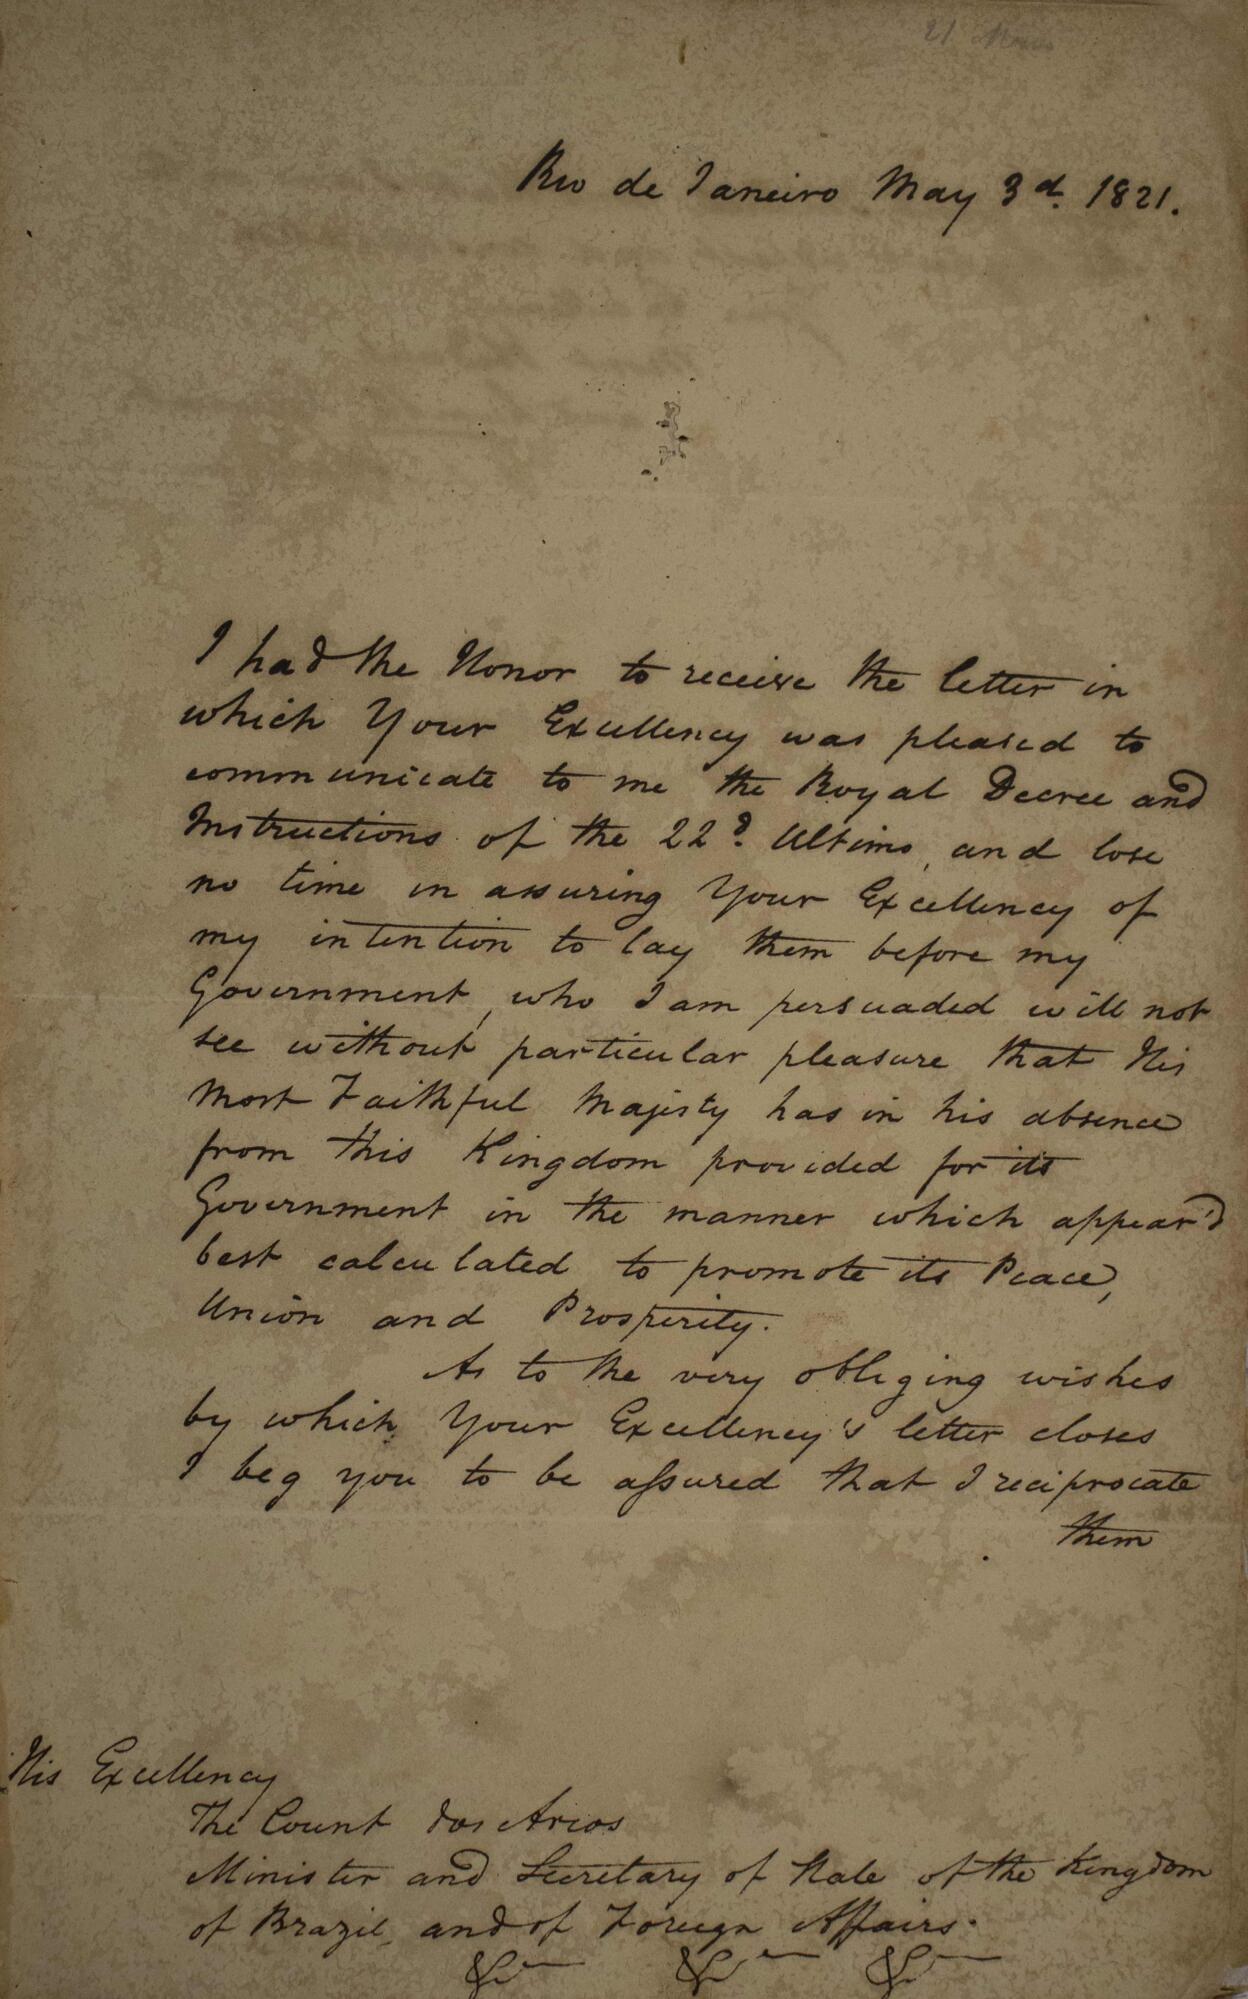 Rio de Janeiro May 3d. 1821.
I had the Honor to receive the letter in
which Your Excellency was pleased to
communicate to me the Royal Decree and
Instructions of the 22d. Ultimo, and lose
no time in assuring Your Excellency of
my intention to lay them before my
Government, who I am persuaded will not
see without particular pleasure that His
Most Faithful Majesty has in his absence
from this Kingdom provided for its
Government in the manner which appear'd
best calculated to promote its Peace,
Union and Prosperity.
As to the very obliging wishes
by which Your Excellency's letter closes
I beg you to be assured that I reciprocate
them
His Excellency
The Count dos Arcos
Minister and Secretary of State of the Kingdom
of Brazil, and of Foreign Affairs.
&c &c &c